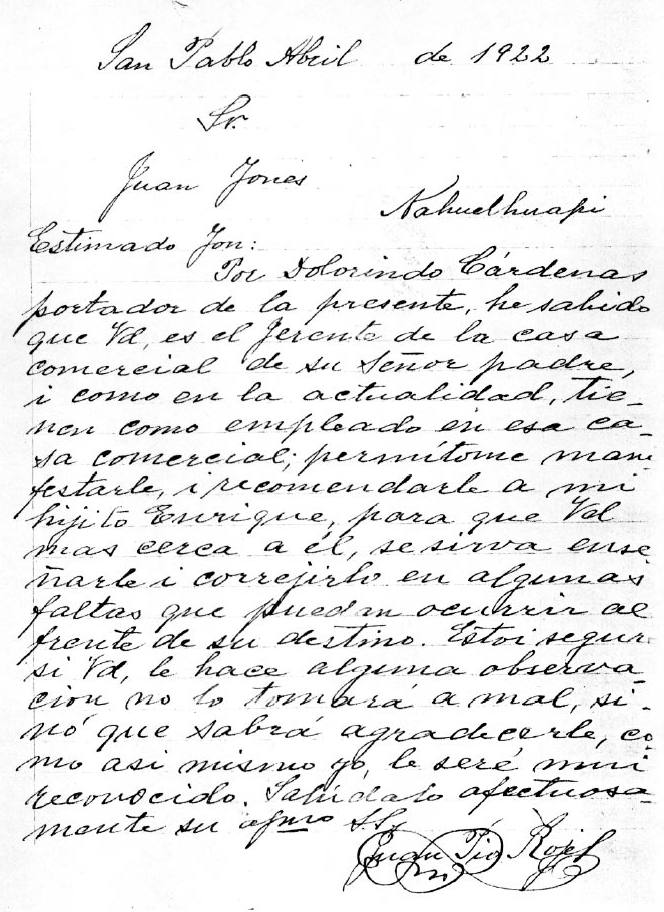 San Pablo Abril de 1922
Sr.
Juan Jones
Nahuelhuapi
Estimado Jon:
Por Dolorindo Cárdenas
portador de la presente, he sabido
que Vd, es el Jerente de la casa
comercial de su Señor padre,
i como en la actualidad, tie-
nen como empleado en esa ca-
sa comercial; permítome mani
festarle, i recomendarle a mi
hijito Enrique, para que Vd
mas cerca a él, se sirva ense
ñarle i correjirlo en algunas
faltas que puedan ocurrir al
frente de su destino. Estoi segur
si Vd, le hace alguna observa
cion no lo tomará a mal, si-
nó que sabrá agradecerle, co
mo asi mismo yo, le seré mui
reconocido. Salúdalo afectuosa-
mente su afmo S.S.
Juan Pio Rojel